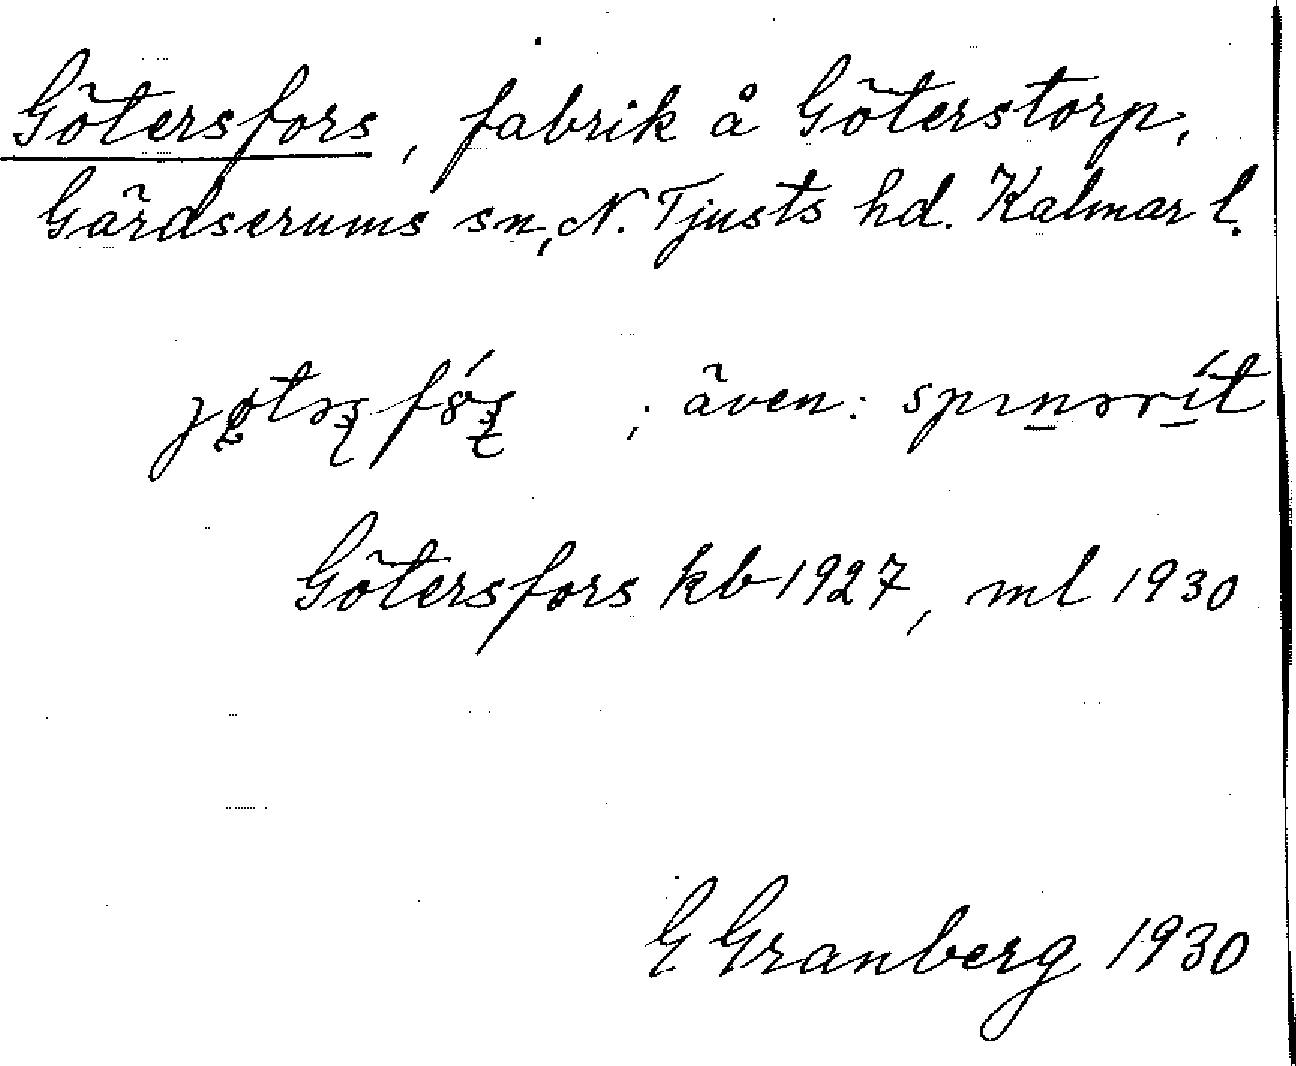 Götersfors, fabrik å Göterstorp,
Gärdserums sn, N. Tjusts hd. Kalmar l.
; även: spinərít
Götersfors kb 1927, ml 1930
G Granberg 1930